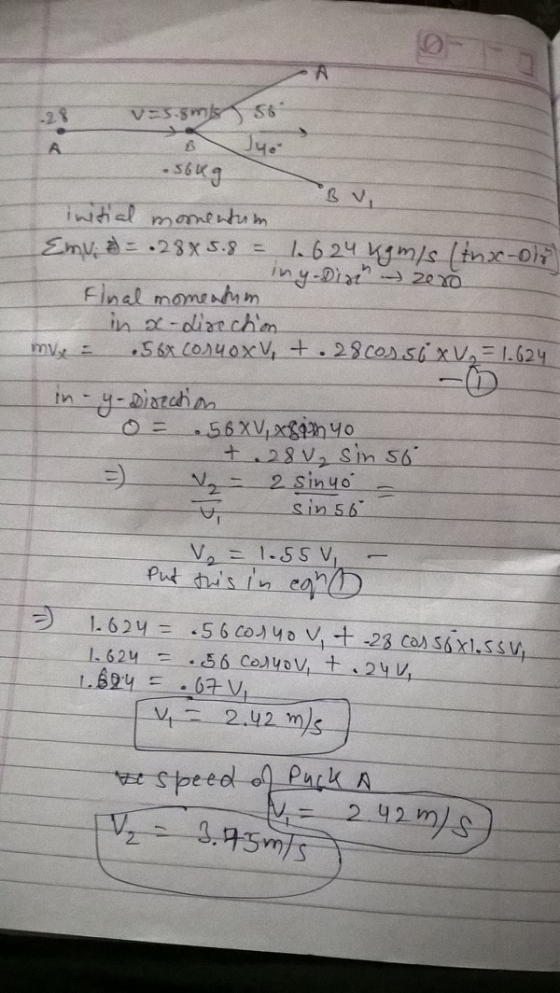 A
.28 V=5.8m/s 56°
A B 40°
.56kg
B V₁
initial momentum
Σmvᵢ = .28 x 5.8 = 1.624 kgm/s (in x-Dirⁿ)
in y-Dirⁿ → zero
Final momentum
in x-direction
mvₓ = .56x cos40 x V₁ + .28 cos 56° x V₂ = 1.624
— ①
in - y-Direction
0 = .56 x V₁ x sin 40
+ .28 V₂ sin 56°
⇒ V₂/V₁ = 2 sin40°/sin 56° =
V₂ = 1.55 V₁ —
Put this in eqⁿ ①
⇒ 1.624 = .56 cos40 V₁ + .28 cos 56° x 1.55 V₁
1.624 = .56 cos40 V₁ + .24 V₁
1.624 = .67 V₁
V₁ = 2.42 m/s
speed of Puck A
V₁ = 2.42 m/s
V₂ = 3.75 m/s